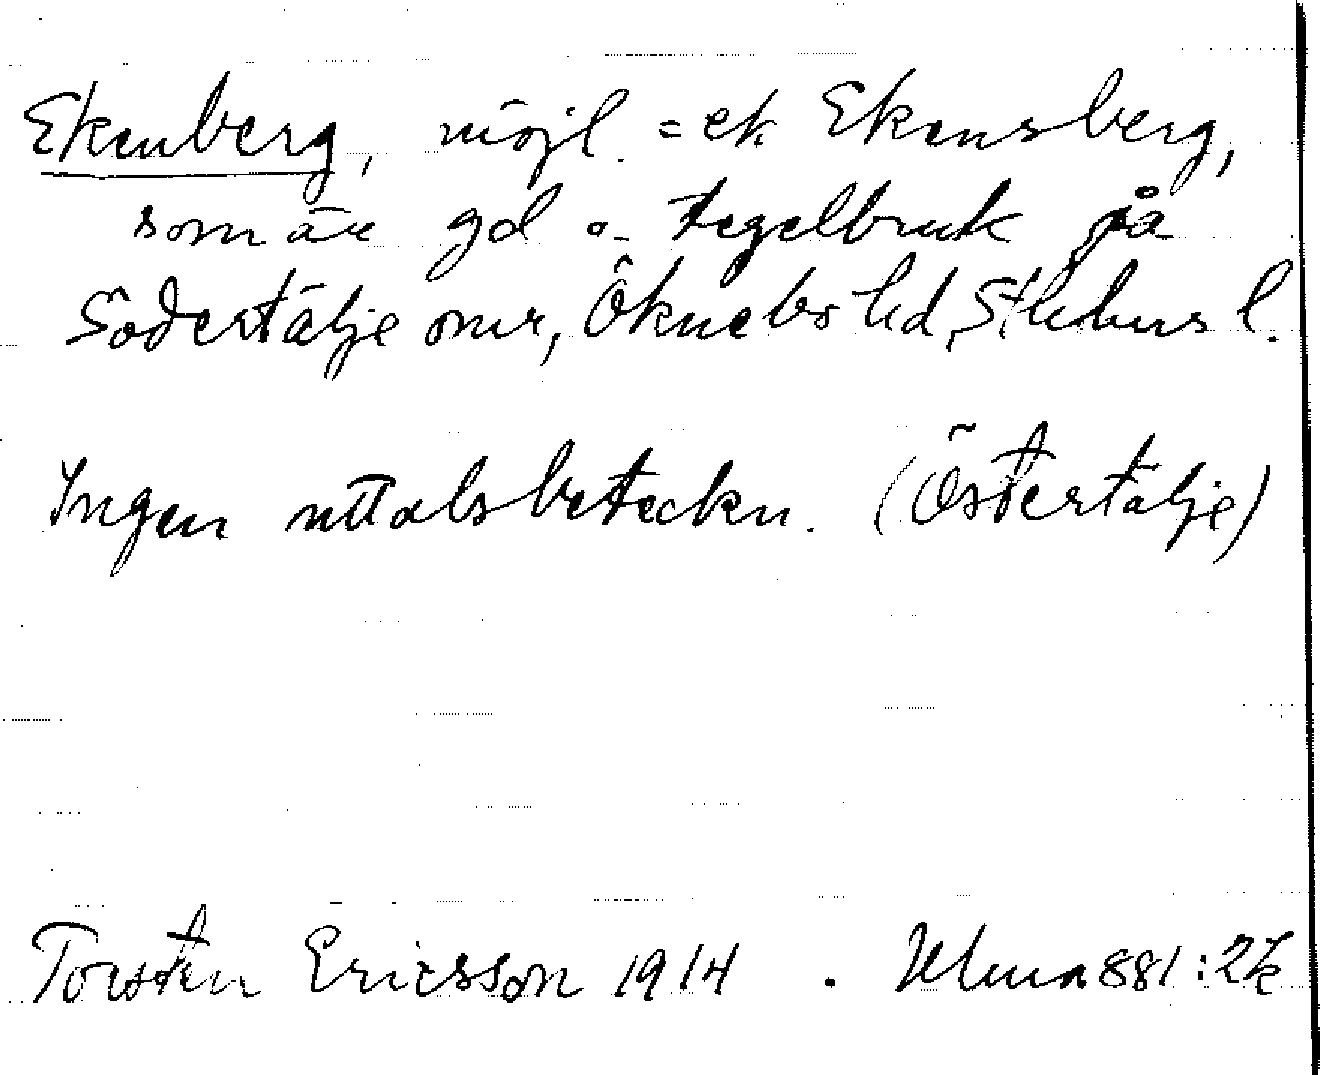 Ekenberg, möjl. = ek Ekensberg,
som är gd o. tegelbruk på
Södertälje omr, Öknebo hd, Sthlms l.
Ingen uttalsbeteckn. (Östertälje)
Torsten Ericsson 1914 . Ulma 881:2